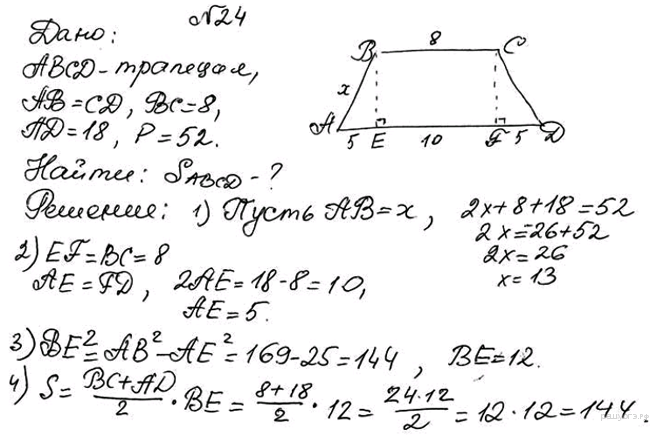 №24
Дано:
ABCD - трапеция,
AB = CD, BC = 8,
AD = 18, P = 52.
Найти: S_ABCD - ?
B 8 C
x
A 5 E 10 F 5 D
Решение: 1) Пусть AB = x, 2x + 8 + 18 = 52
2x = -26 + 52
2x = 26
x = 13
2) EF = BC = 8
AE = FD, 2AE = 18 - 8 = 10,
AE = 5.
3) BE² = AB² - AE² = 169 - 25 = 144, BE = 12.
4) S = (BC + AD)/2 · BE = (8 + 18)/2 · 12 = (24 · 12)/2 = 12 · 12 = 144.
решуогэ.рф